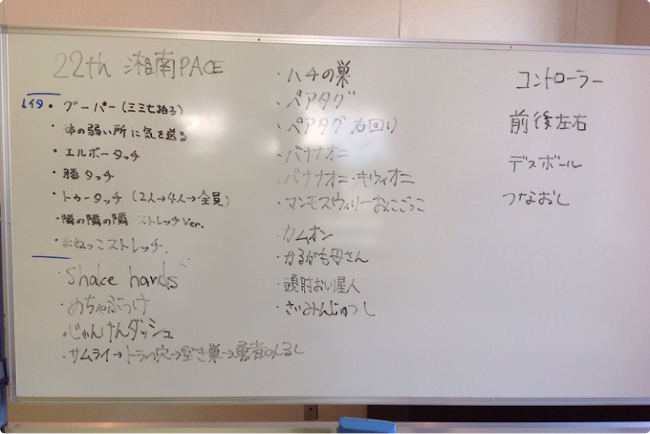 22th 湘南PACE
・グーパー(三三七拍子)
・体の弱い所に気を送る
・エルボータッチ
・膝タッチ
・トゥータッチ(2人→4人→全員)
・隣の隣の隣 ストレッチVer.
・まねっこストレッチ
・Shake hands
・めちゃぶつけ
・じゃんけんダッシュ
・サムライ→トラの穴→空き巣→勇者のしるし
・ハチの巣
・ペアタグ
・ペアタグ 右回り
・バナナオニ
・バナナオニ・キウィオニ
・マンモスウィリーおにごっこ
・カムオン
・かるがも母さん
・頭肘おい星人
・さいみんじゅつし
コントローラー
前後左右
デスボール
つなおし